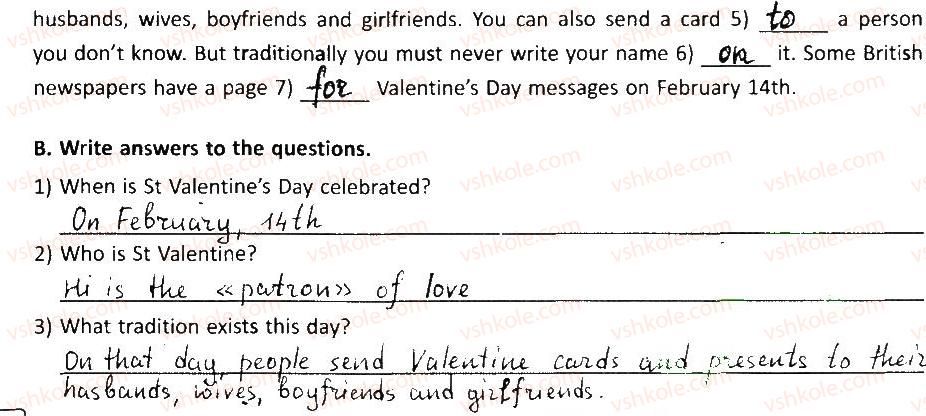 husbands, wives, boyfriends and girlfriends. You can also send a card 5) to a person
you don't know. But traditionally you must never write your name 6) on it. Some British
newspapers have a page 7) for Valentine's Day messages on February 14th.
B. Write answers to the questions.
1) When is St Valentine's Day celebrated?
On February, 14th
2) Who is St Valentine?
Hi is the «patron» of love
3) What tradition exists this day?
On that day, people send Valentine cards and presents to their
hasbands, wives, boyfriends and girlfriends.